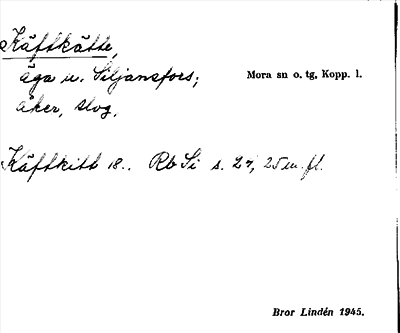 Käftkätte,
äga u. Siljansfors;
Mora sn o. tg, Kopp. l.
åker, skog.
Käftkitt 18.. Rb Si s. 24, 25 m. fl.
Bror Lindén 1945.